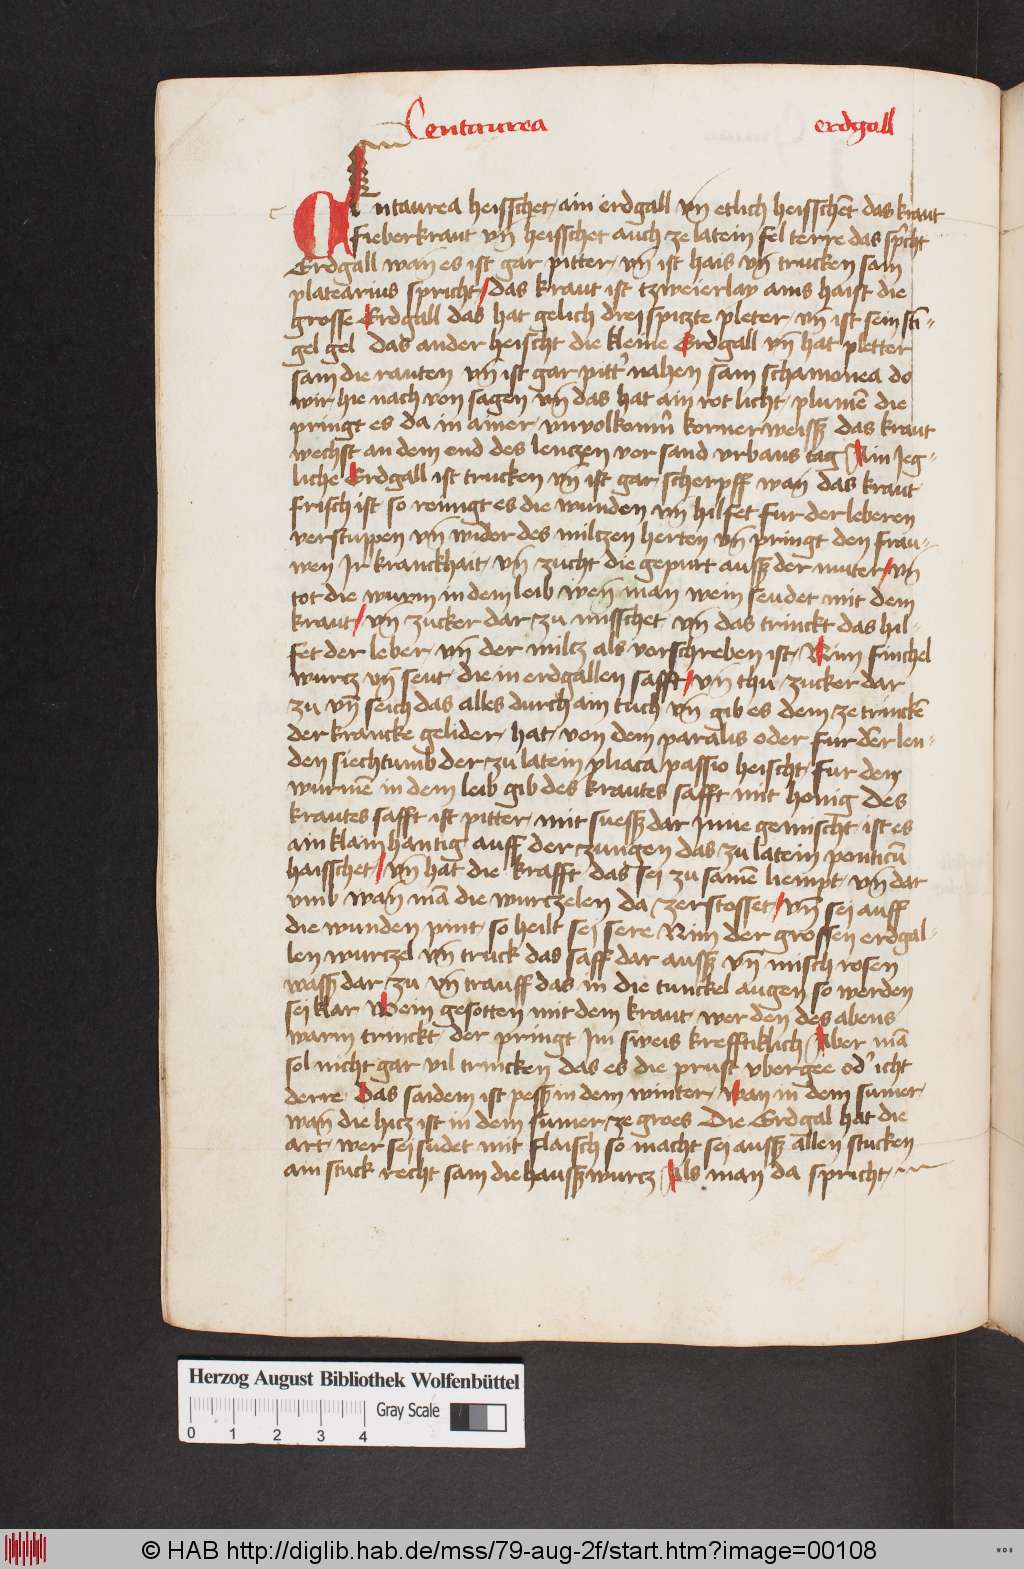 Centaurea erdgall
Centaurea heisschet ain erdgall vn̄ etlich heisschēt das kraut
fieberkraut vn̄ heisschet auch ze latein fel terre das spͥcht
Erdgall wan̄ es ist gar pitter vn̄ ist hais vn̄ trucken sam
platearius spricht / das kraut ist tzweierlay ains haist die
grosse Erdgall das hat gelich drei spitzte pleter vn̄ ist sein sti-
gel gel das ander heischt die kleine Erdgall vn̄ hat pletter
sam die rauten vn̄ ist gar pittʼ nahen sam schamonea do
wir hie nach von sagen vn̄ das hat ain rot licht plumē die
pringt es da in ainer vnuolkomn̄ korner weissz das kraut
wechst an dem end des lenczen vor sand vrbans tag Ain Jeg-
liche Erdgall ist trucken vn̄ ist gar scherpff wan̄ das kraut
frisch ist so reinigt es die wunden vn̄ hilfet fur der leberen
verstuppen vn̄ wider des milczen herten vn̄ pringt den frau-
wen Jr kranckhait vn̄ zucht die gepurt aussz der muter / vn̄
tot die wurm in dem leib wen̄ man wein seudet mit dem
kraut / vn̄ zucker dar zu misschet vn̄ das trinckt das hil-
fet der leber vn̄ der milcz als vorschreben ist Nim finchel
wurcz vn̄ seut die in erdgallen safft / vn̄ thu zucker dar
zu vn̄ seich das alles durch ain tuch vn̄ gib es dem ze trinckē
der krancke gelider hat von dem paralis oder fur der len-
den siechtumb der zu latein yliaca passio heischt fur den
wurmē in dem leib gib des krautes safft mit honig Des
krautes safft ist pitter mit suessz dar Inne gemischt ist es
ain klain hantig auff der czungen das zu latein ponticū
haisschet / vn̄ hat die krafft das sej zu samē liempt vn̄ dat
vmb wan̄ mā die wurczelen da zerstosset / vn̄ sej auff
die wunden pint so heilt sej sere Nim der grossen erdgal-
len wurczel vn̄ truck das saff dar aussz vn̄ misch rosen
wassz dar zu vn̄ trauff das in die tunckel augen so werden
sej klar Wein gesotten mit dem kraut wer den des abens
warm trinckt der pringt Jm sweis krefftiklich Aber mā
sol nicht gar vil trincken das es die prust vbergee odʼ icht
derre Das saidem ist pessz in dem winter wan in dem sumer
wan̄ die hicz ist in dem sumer ze groes Die Erdgal hat die
art wer sej sudet mit flaisch so macht sej aussz allen stucken
ain stuck recht sam die haussz wurcz Als man da spricht
Herzog August Bibliothek Wolfenbüttel
Gray Scale
0 1 2 3 4
© HAB http://diglib.hab.de/mss/79-aug-2f/start.htm?image=00108